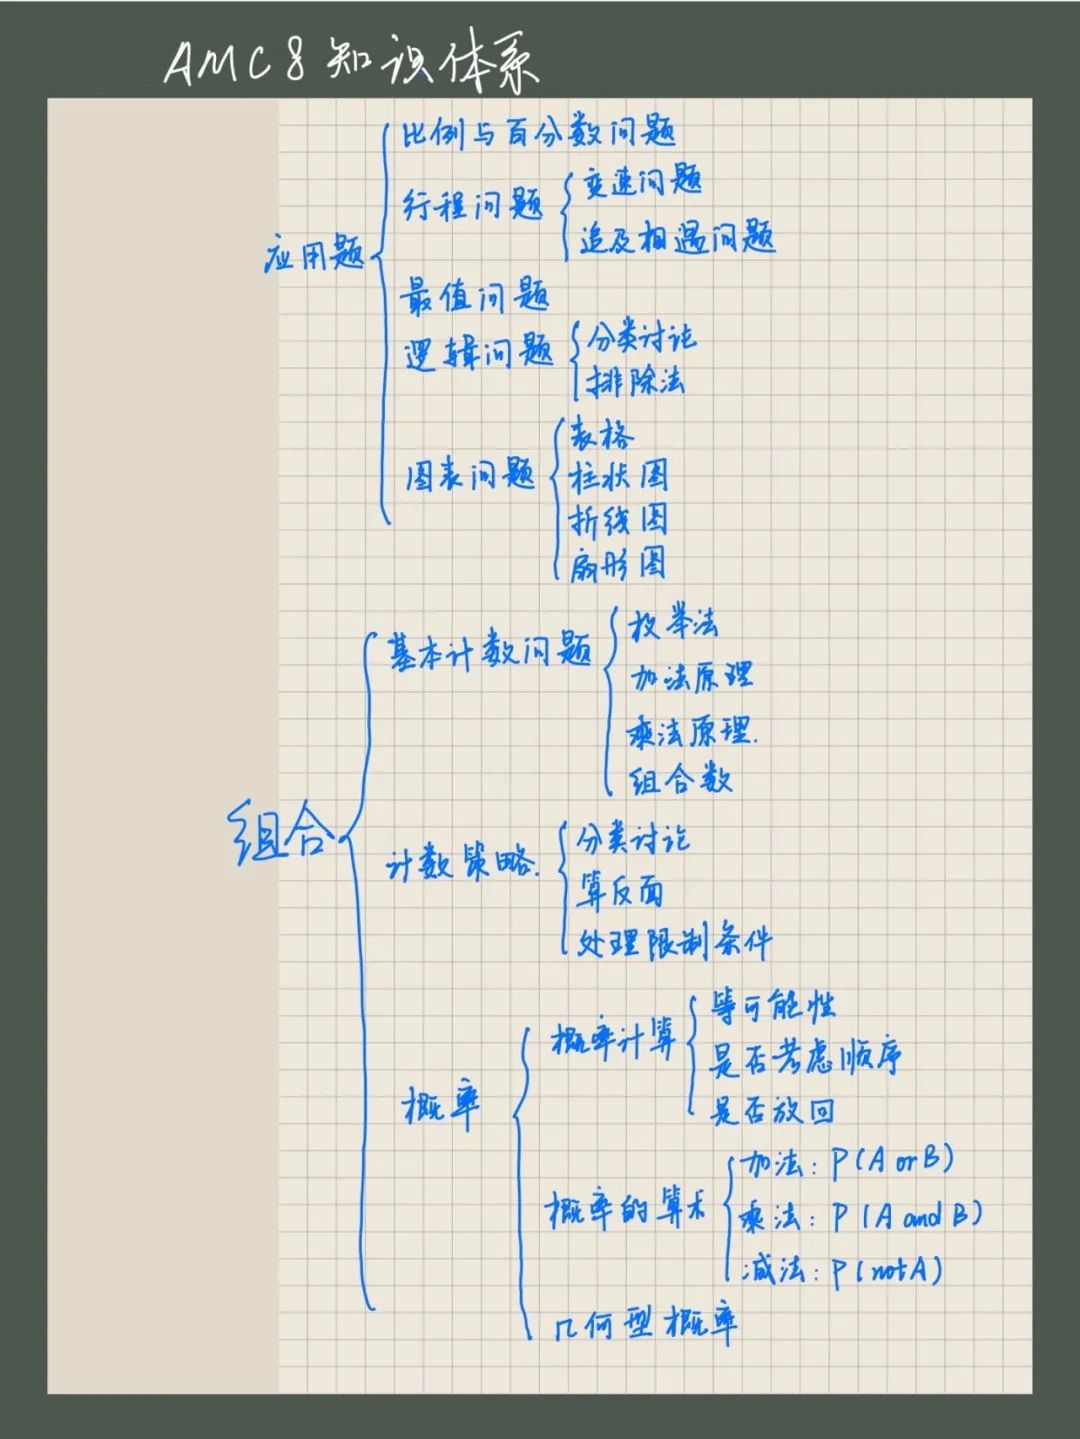 AMC8知识体系
比例与百分数问题
变速问题
行程问题
追及相遇问题
应用题
最值问题
分类讨论
逻辑问题
排除法
表格
图表问题
柱状图
折线图
扇形图
枚举法
基本计数问题
加法原理
乘法原理.
组合数
组合
分类讨论
计数策略.
算反面
处理限制条件
等可能性
概率计算
是否考虑顺序
概率
是否放回
加法: P(A or B)
概率的算术
乘法: P(A and B)
减法: P(not A)
几何型概率